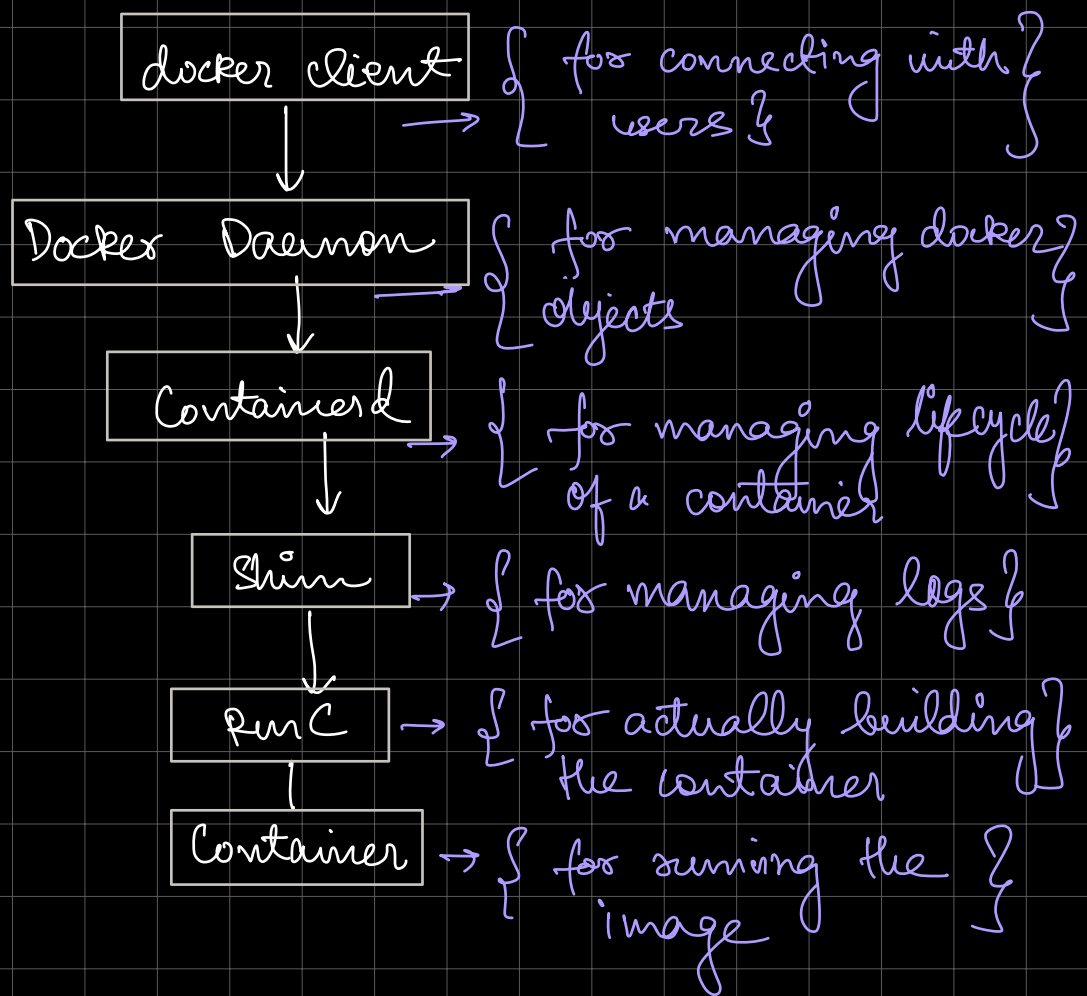 docker client { for connecting with }
users }
Docker Daemon { for managing docker }
objects
Containerd { for managing lifecycle }
of a container
Shim { for managing logs }
RunC { for actually building }
the container
Container { for running the }
image